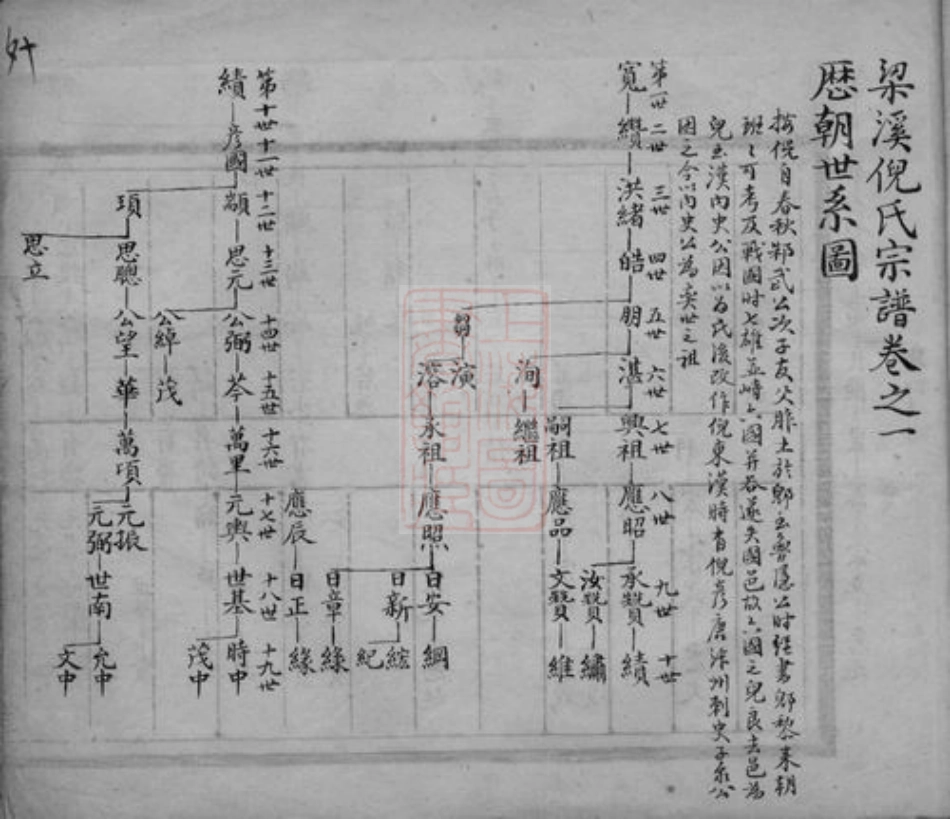 梁溪倪氏宗譜卷之一
歴朝世系圖
按倪自春秋邾武公次子友父胙土於郳至魯隱公時經書郳黎来朝
班〻可考及戰國時七雄並峙六國并吞遂失國邑故六國之兒良去邑為
兒至漢内史公因以為氏後改作倪東漢時有倪彦唐泲州刺史子泉公
因之今以内史公為奕世之祖
第一世 二世 三世 四世 五世 六世 七世 八世 九世 十世
寬 纘 洪緒 皓 朋 湛 興祖 應昭 承贊 績
汝贊 繡
嗣祖 應品 文贊 維
洵 繼祖
芻 演
溶 永祖 應照 日安 綱
日新 綋
紀
日章 緣
應辰 日正 緣
第十世 十一世 十二世 十三世 十四世 十五世 十六世 十七世 十八世 十九世
績 彦國 顓 思元 公弼 芩 萬里 元輿 世基 時中
茂中
公綽 茂
項 思聰 公望 華 萬項 元振
元弼 世南 允中
文中
思立